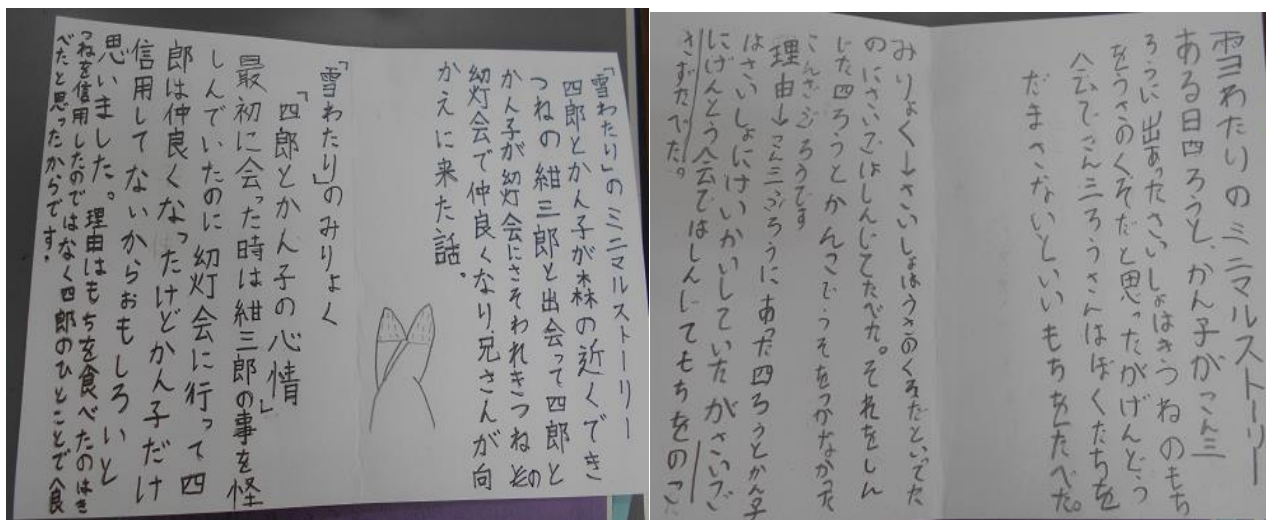 「雪わたり」のミニマルストーリー
四郎とかん子が森の近くできつ
つねの紺三郎と出会って四郎と
かん子が幻灯会にさそわれきつねの
幻灯会で仲良くなり兄さんが向
かえに来た話。
「雪わたり」のみりょく
「四郎とかん子の心情」
最初に会った時は紺三郎の事を怪
しんでいたのに幻灯会に行って四
郎は仲良くなったけどかん子だけ
信用してないからおもしろいと
思いました。理由はもちを食べたのはき
つねを信用したのではなく四郎のひとことで食
べたと思ったからです。
雪わたりのミニマルストーリー
ある日四ろうと、かん子がこん三
ろうに出あったさいしょはきつねのもち
をうさのくそだと思ったがげんとう
会でこん三ろうさんはぼくたちを
だまさないといいもちをたべた。
みりょく→さいしょはうさのくそだといってた
のにさいごはしんじてたべた。それをしん
じた四ろうとかんこでうそをつかなかった
こんざぶろうです
理由→こん三ぶろうにあった四ろうとかん子
はさいしょにけいかいしていたがさいご
にげんとう会ではしんじてもちをのこ
さずたべた。